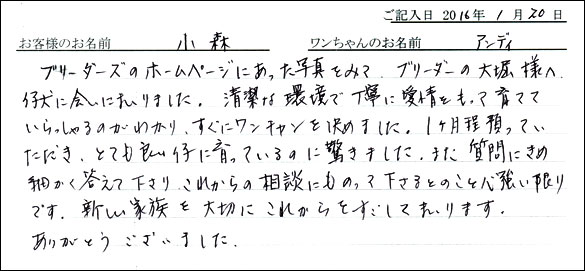 ご記入日 2016年 1月 20日
お客様のお名前 小森 ワンちゃんのお名前 アンディ
ブリーダーズのホームページにあった写真をみて、ブリーダーの大堀様へ
仔犬に会いにまいりました。清潔な環境で丁寧に愛情をもって育てて
いらっしゃるのがわかり、すぐにワンチャンを決めました。1ヶ月程預ってい
ただき、とても良い仔に育っているのに驚きました。また質問にきめ
細かく答えて下さり、これからの相談にものって下さるとのこと心強い限り
です。新しい家族を大切にこれからをすごしてまいります。
ありがとうございました。